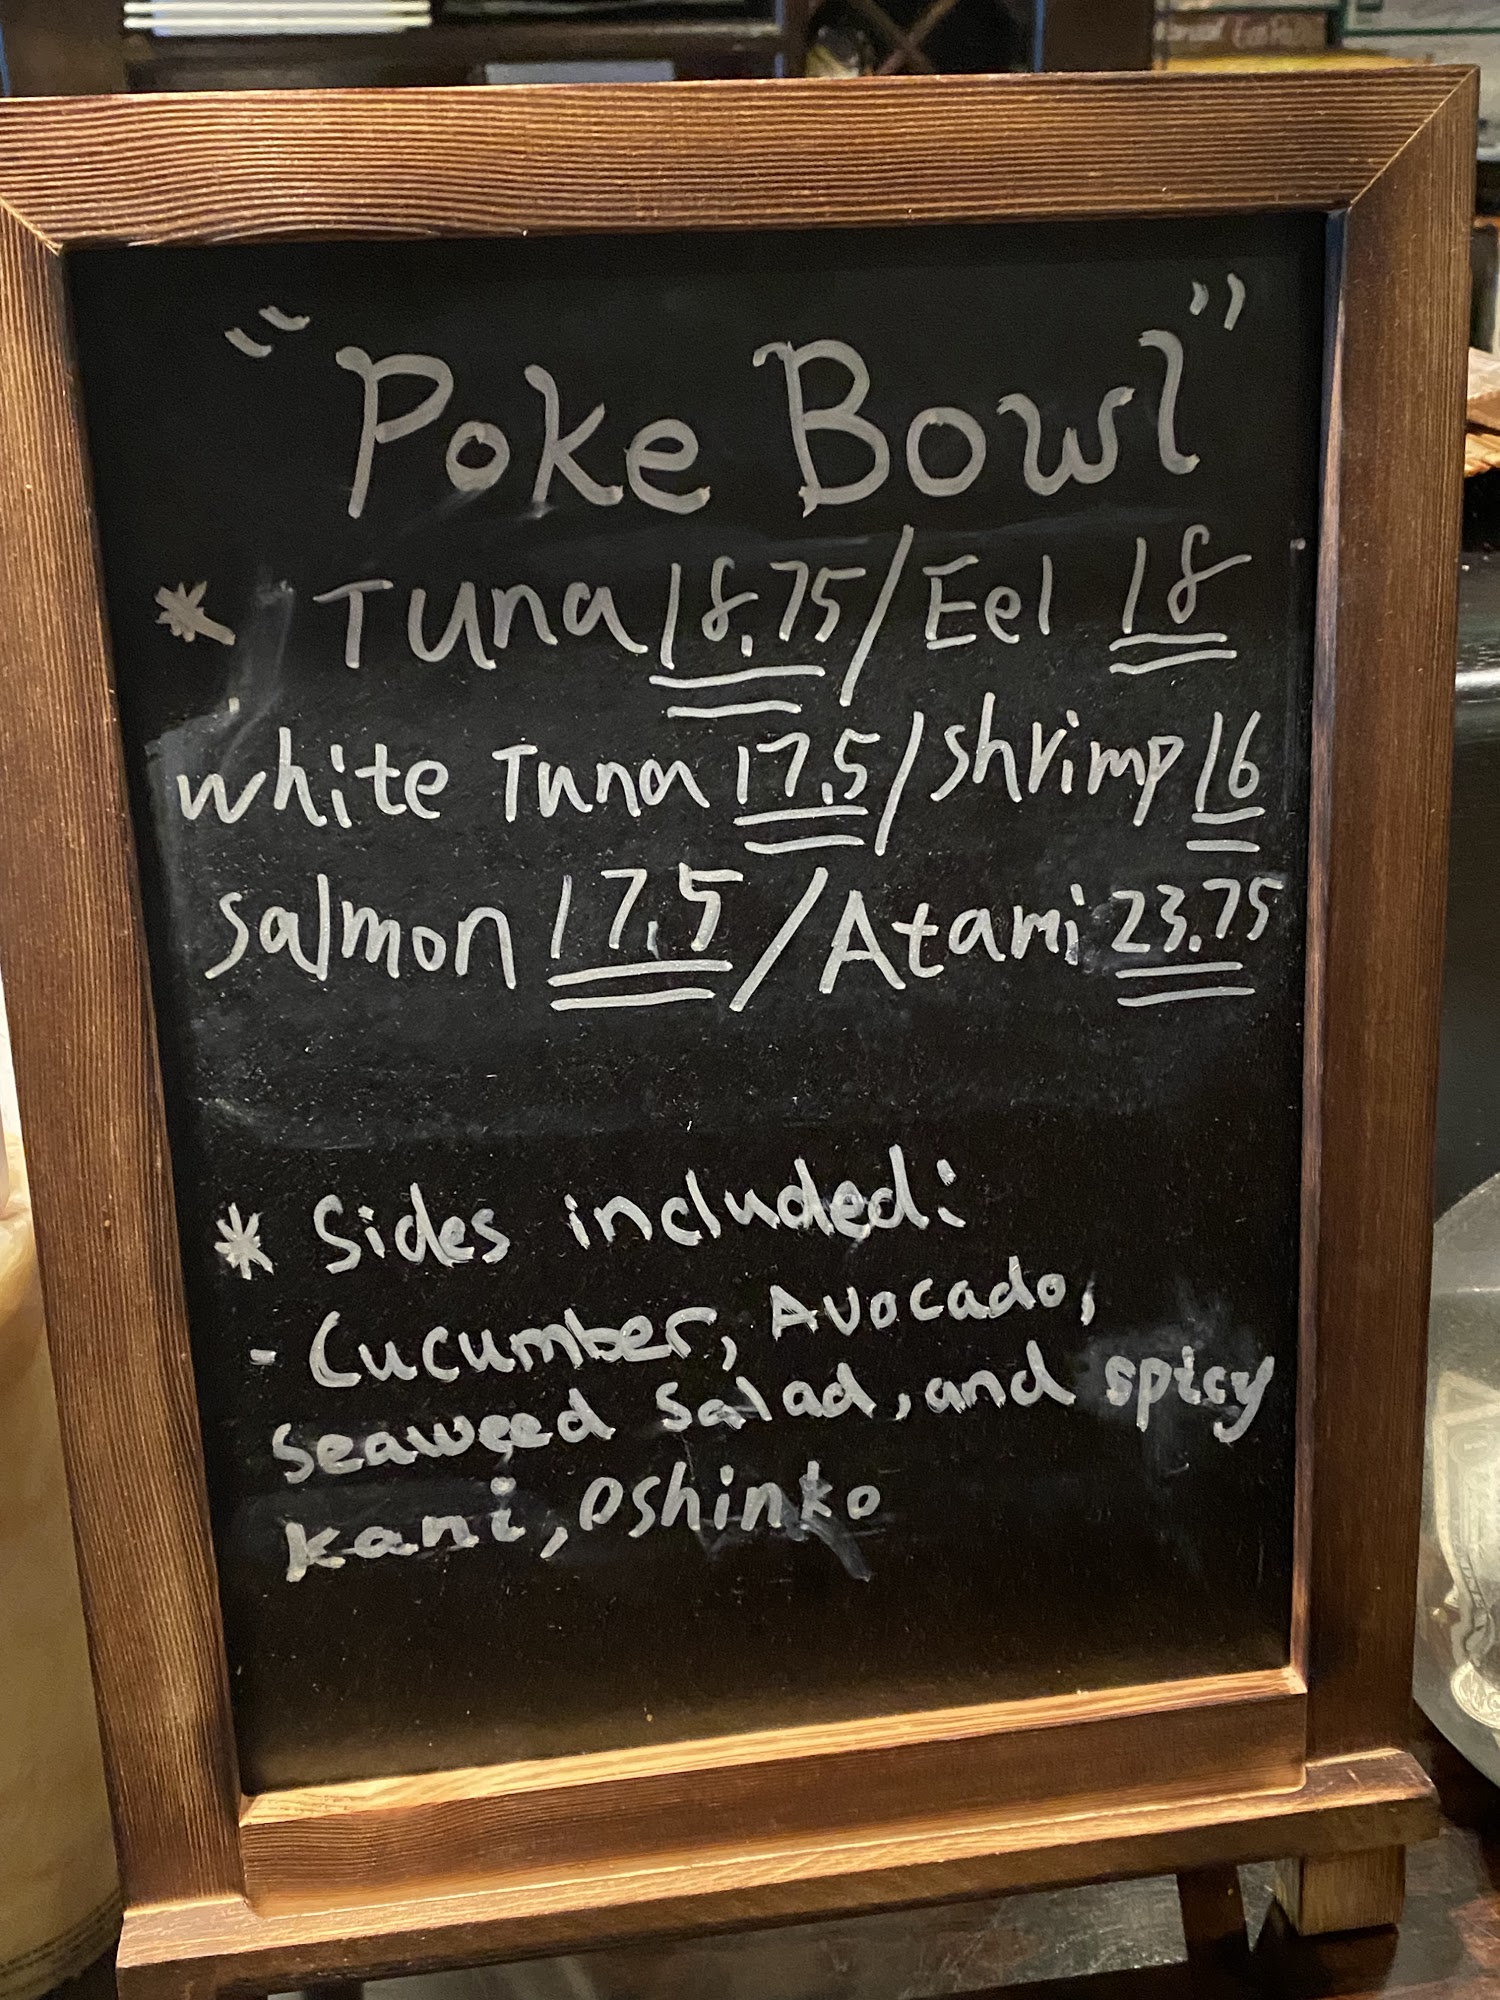 "Poke Bowl"
* Tuna 18.75 / Eel 18
white Tuna 17.5 / Shrimp 16
Salmon 17.5 / Atami 23.75
* Sides included:
- Cucumber, Avocado,
Seaweed Salad, and spicy
Kani, Oshinko